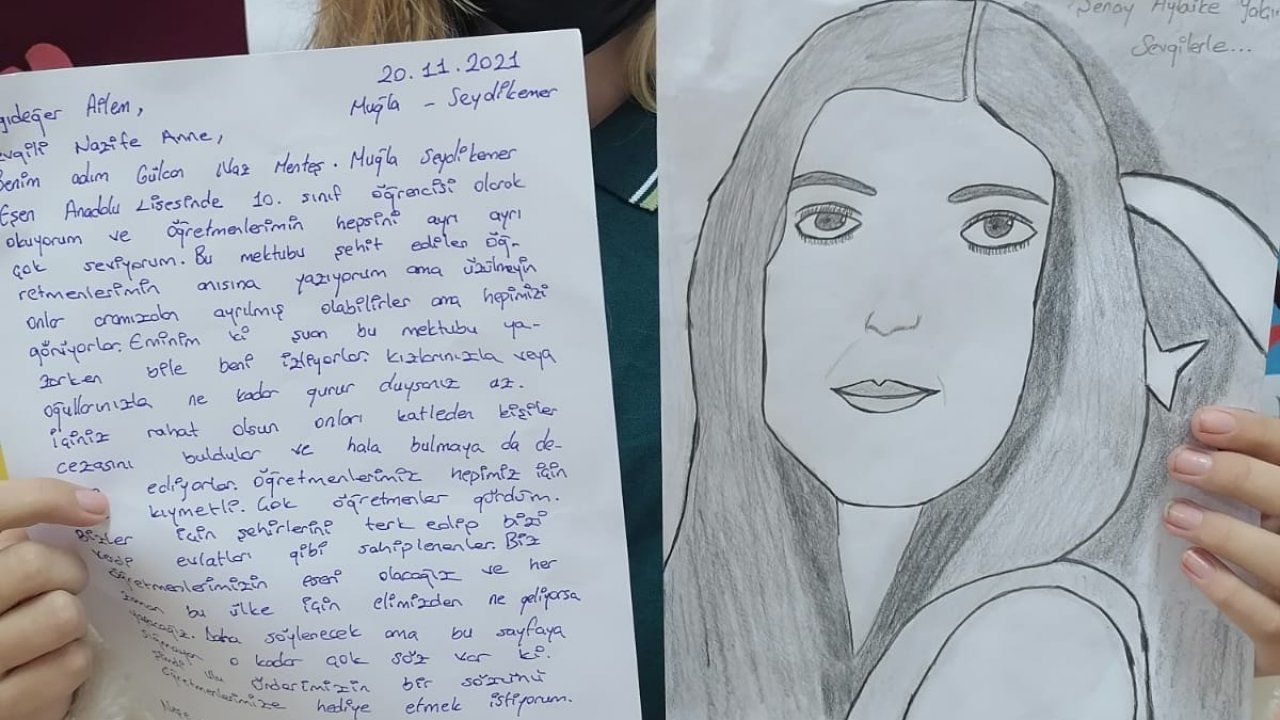 20.11.2021
Muğla - Seydikemer
Ailem,
Nazife Anne,
Benim adım Gülcan Naz Menteş. Muğla Seydikemer
Eşen Anadolu Lisesinde 10. sınıf öğrencisi olarak
okuyorum ve öğretmenlerimin hepsini ayrı ayrı
çok seviyorum. Bu mektubu şehit edilen öğ-
retmenlerimin anısına yazıyorum ama üzülmeyin
onlar aramızdan ayrılmış olabilirler ama hepimizi
görüyorlar. Eminim ki şuan bu mektubu ya-
zarken bile beni izliyorlar. kızlarınızla veya
oğullarınızla ne kadar gurur duysanız az.
İçiniz rahat olsun onları katleden kişiler
cezasını buldular ve hala bulmaya da de-
ediyorlar. Öğretmenlerimiz hepimiz için
kıymetli. Çok öğretmenler gördüm.
Bizler için şehirlerini terk edip bizi
evlatları gibi sahiplenenler. Biz
öğretmenlerimizin eseri olacağız ve her
zaman bu ülke için elimizden ne geliyorsa
yapacağız. Daha söylenecek ama bu sayfaya
sığmayan o kadar çok söz var ki.
Şimdi Ulu Önderimizin bir sözünü
öğretmenlerimize hediye etmek istiyorum.
Şenay Aybüke
Sevgilerle...